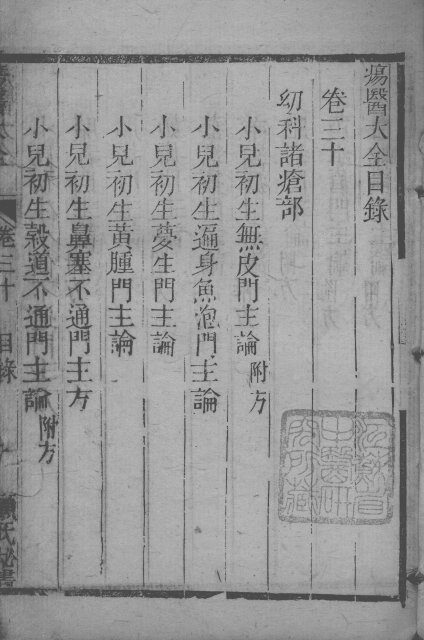 瘍醫大全目錄
卷三十
幼科諸瘡部
小兒初生無皮門主論附方
小兒初生遍身魚泡門主論
小兒初生夔生門主論
小兒初生黃腫門主論
小兒初生鼻塞不通門主方
小兒初生穀道不通門主論附方
卷三十 目錄